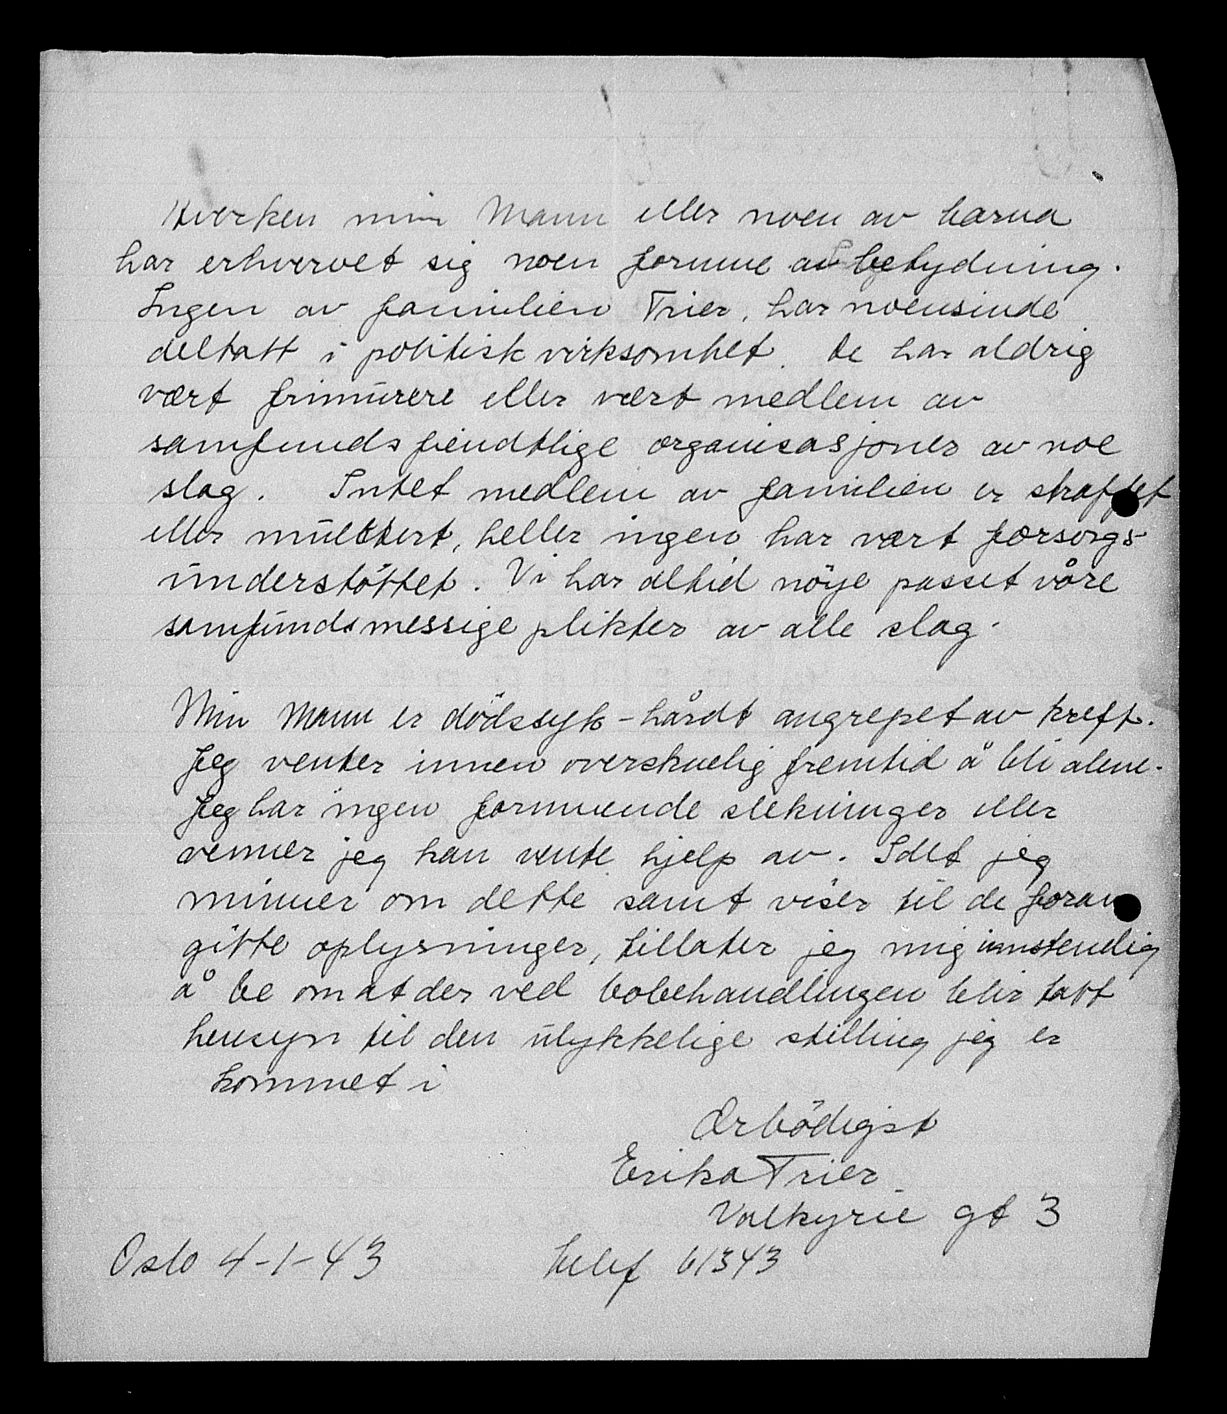 Hverken min Mann eller noen av barna
har erhvervet sig noen formue av betydning.
Ingen av familien Trier, har noensinde
deltatt i politisk virksomhet. De har aldrig
vært frimurere eller vært medlem av
samfundsfiendtlige organisasjoner av noe
slag. Intet medlem av familien er straffet
eller mulktert, heller ingen har vært forsorgs-
understöttet. Vi har altid nöye passet våre
samfundsmessige plikter av alle slag.
Min Mann er dödssyk - hårdt angrepet av kreft.
Jeg venter innen overskuelig fremtid å bli alene.
Jeg har ingen formuende slektninger eller
venner jeg kan vente hjelp av. Idet jeg
minner om dette samt viser til de foran
gitte oplysninger, tillater jeg mig innstendig
å be om at der ved bobehandlingen blir tatt
hensyn til den ulykkelige stilling jeg er
kommet i
Ærbödigst
Erika Trier
Valkyrie gt 3
Oslo 4-1-43 Telef 61343